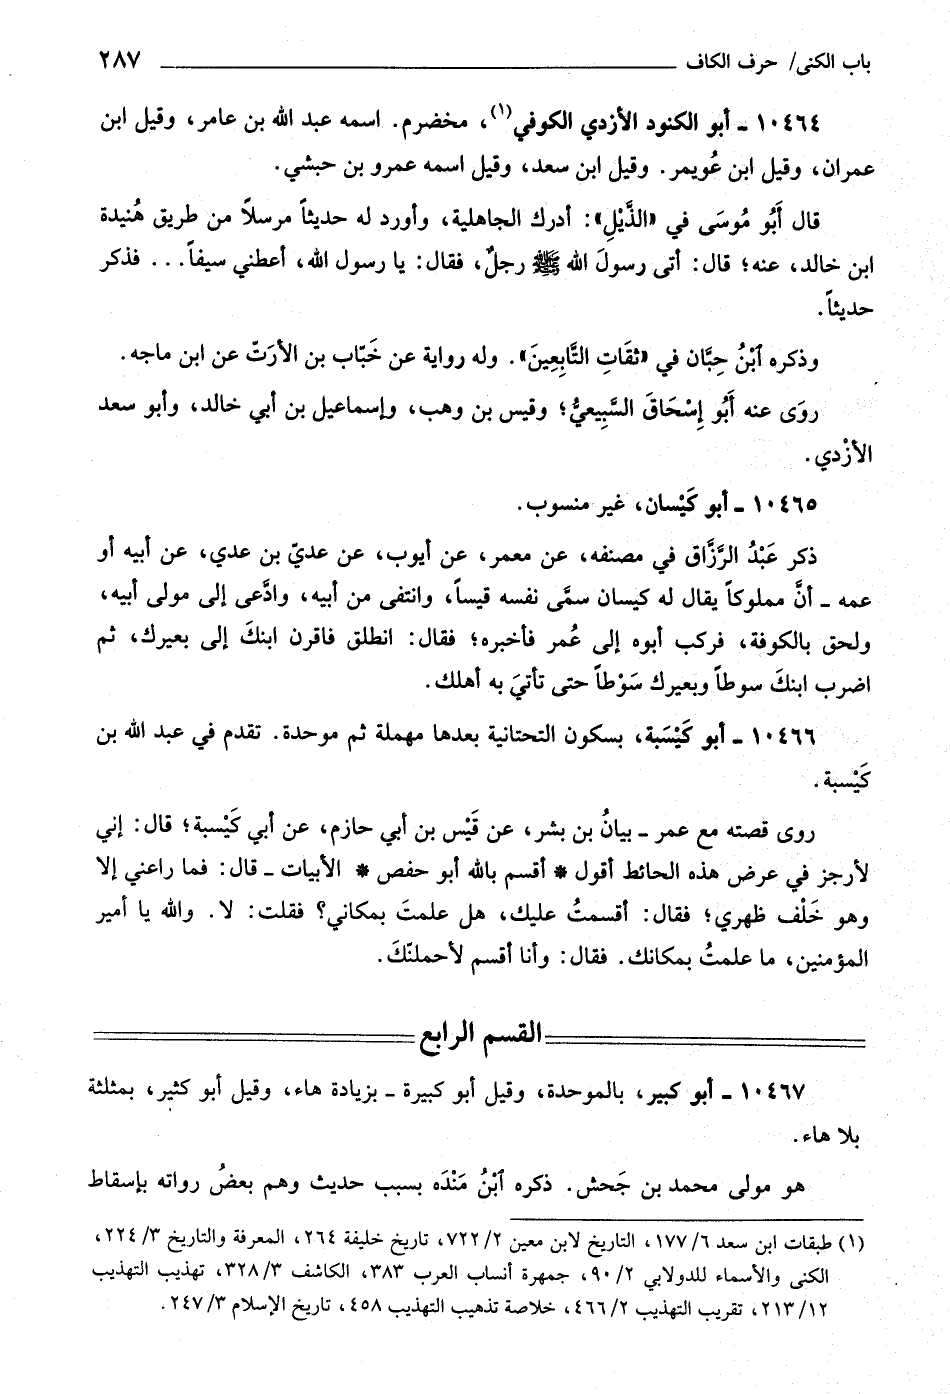 باب الكنى/ حرف الكاف ٢٨٧
١٠٤٦٤ ـ أبو الكنود الأزدي الكوفي(١)، مخضرم. اسمه عبد الله بن عامر، وقيل ابن
عمران، وقيل ابن عُويمر. وقيل ابن سعد، وقيل اسمه عمرو بن حبشي.
قال أَبُو مُوسَى في «الذَّيْلِ»: أدرك الجاهلية، وأورد له حديثاً مرسلاً من طريق هُنيدة
ابن خالد، عنه؛ قال: أتى رسولَ الله ﷺ رجلٌ، فقال: يا رسول الله، أعطني سيفاً... فذكر
حديثاً.
وذكره ٱبْنُ حِبَّان في «ثقَاتِ التَّابِعِينَ». وله رواية عن خَبّاب بن الأرَتّ عن ابن ماجه.
روَى عنه أَبُو إِسْحَاقَ السَّبِيعيُّ؛ وقيس بن وهب، وإسماعيل بن أبي خالد، وأبو سعد
الأزْدي.
١٠٤٦٥ ـ أبو كَيْسان، غير منسوب.
ذكر عَبْدُ الرَّزَّاق في مصنفه، عن معمر، عن أيوب، عن عديّ بن عدي، عن أبيه أو
عمه ـ أنَّ مملوكاً يقال له كيسان سمَّى نفسه قيساً، وانتفى من أبيه، وادَّعى إلى مولى أبيه،
ولحق بالكوفة، فركب أبوه إلى عُمر فأخبره؛ فقال: انطلق فاقرن ابنكَ إلى بعيرك، ثم
اضرب ابنكَ سوطاً وبعيرك سَوْطاً حتى تأتيَ به أهلك.
١٠٤٦٦ ـ أبو كَيْسَبة، بسكون التحتانية بعدها مهملة ثم موحدة. تقدم في عبد الله بن
كَيْسبة.
روى قصته مع عمر ـ بيانُ بن بشر، عن قَيْس بن أبي حازم، عن أبي كَيْسبة؛ قال: إني
لأرجز في عرض هذه الحائط أقول * أقسم بالله أبو حفص * الأبيات ـ قال: فما راعني إلا
وهو خَلْف ظهري؛ فقال: أقسمتُ عليك، هل علمتَ بمكاني؟ فقلت: لا. والله يا أمير
المؤمنين، ما علمتُ بمكانك. فقال: وأنا أقسم لأحملنّكَ.
القسم الرابع
١٠٤٦٧ ـ أبو كبير، بالموحدة، وقيل أبو كبيرة ـ بزيادة هاء، وقيل أبو كثير، بمثلثة
بلا هاء.
هو مولى محمد بن جَحش. ذكره ٱبْنُ مَنْدَه بسبب حديث وهم بعضُ رواته بإسقاط
(١) طبقات ابن سعد ٦/ ١٧٧، التاريخ لابن معين ٢/ ٧٢٢، تاريخ خليفة ٢٦٤، المعرفة والتاريخ ٣/ ٢٢٤،
الكنى والأسماء للدولابي ٢/ ٩٠، جمهرة أنساب العرب ٣٨٣، الكاشف ٣/ ٣٢٨، تهذيب التهذيب
١٢/ ٢١٣، تقريب التهذيب ٢/ ٤٦٦، خلاصة تذهيب التهذيب ٤٥٨، تاريخ الإسلام ٣/ ٢٤٧.